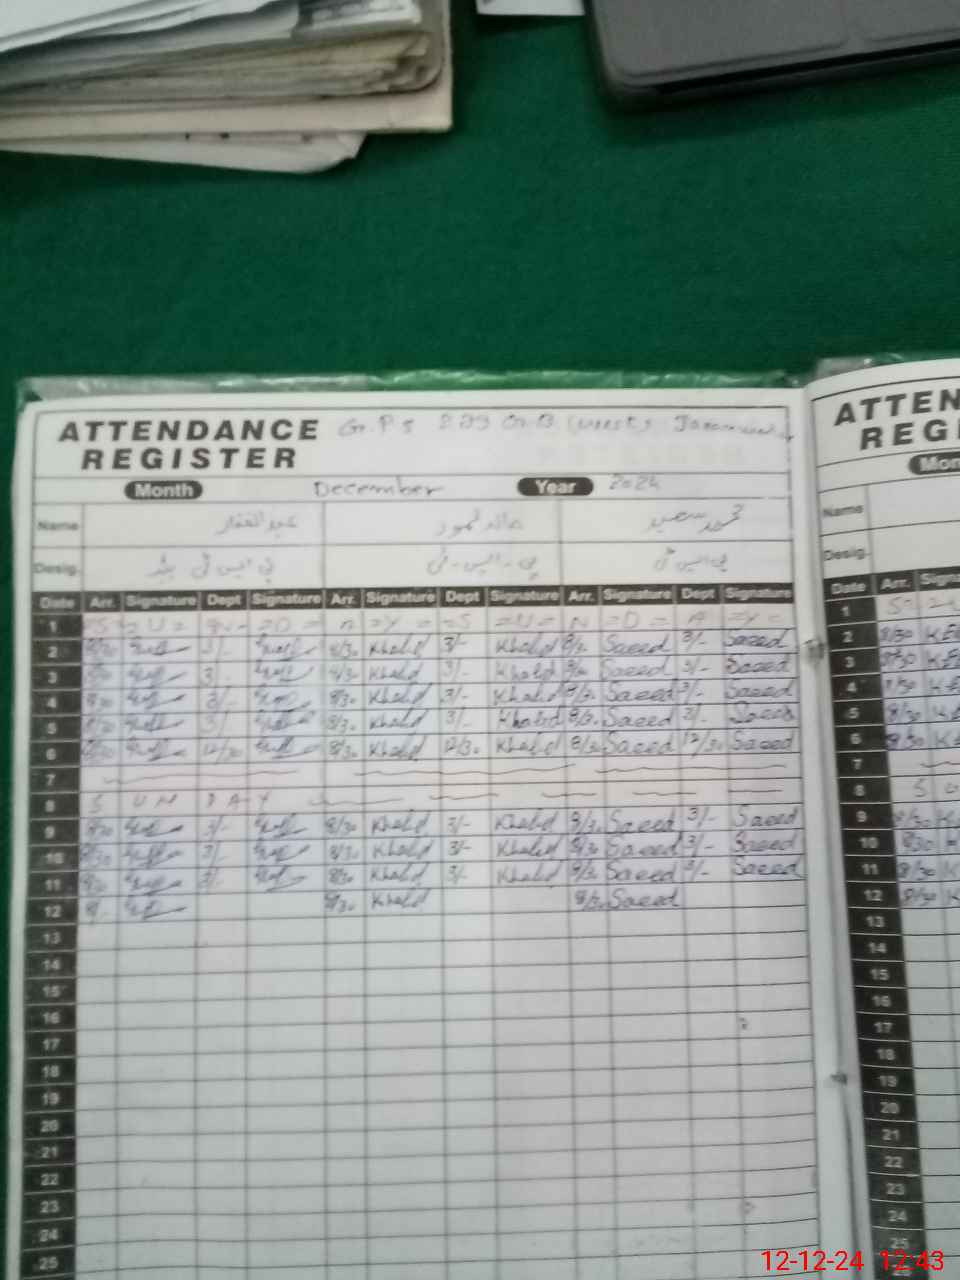 ATTENDANCE REGISTER
G.P.S 239 G.B (West)
Month December Year 2024
Name عبدالغفار خالد محمود محمد سعید
Desig. پی ایس ٹی پی-ایس-ٹی پی ایس ٹی
Date Arr. Signature Dept Signature Arr. Signature Dept Signature Arr. Signature Dept Signature
1 S = U = N = D = A = Y = = S = U = N = D = A = Y =
2 8/30 3/- 8/30 Khalid 3/- Khalid 8/30 Saeed 3/- Saeed
3 8/30 3/- 8/30 Khalid 3/- Khalid 8/30 Saeed 3/- Saeed
4 8/30 3/- 8/30 Khalid 3/- Khalid 8/30 Saeed 3/- Saeed
5 8/30 3/- 8/30 Khalid 3/- Khalid 8/30 Saeed 3/- Saeed
6 8/30 12/30 8/30 Khalid 12/30 Khalid 8/30 Saeed 12/30 Saeed
7
8 S U N D A Y
9 8/30 3/- 8/30 Khalid 3/- Khalid 8/30 Saeed 3/- Saeed
10 8/30 3/- 8/30 Khalid 3/- Khalid 8/30 Saeed 3/- Saeed
11 8/30 3/- 8/30 Khalid 3/- Khalid 8/30 Saeed 3/- Saeed
12 8/30 Khalid 8/30 Saeed
13
14
15
16
17
18
19
20
21
22
23
24
25
ATTEN
REG
Mon
Name
Desig.
Date Arr. Signa
1 S
2 8/30
3 8/30
4 8/30
5 8/30
6 8/30
7
8 S U
9 8/30
10 8/30
11 8/30
12 8/30
13
14
15
16
17
18
19
20
21
22
23
24
25
12-12-24 12:43